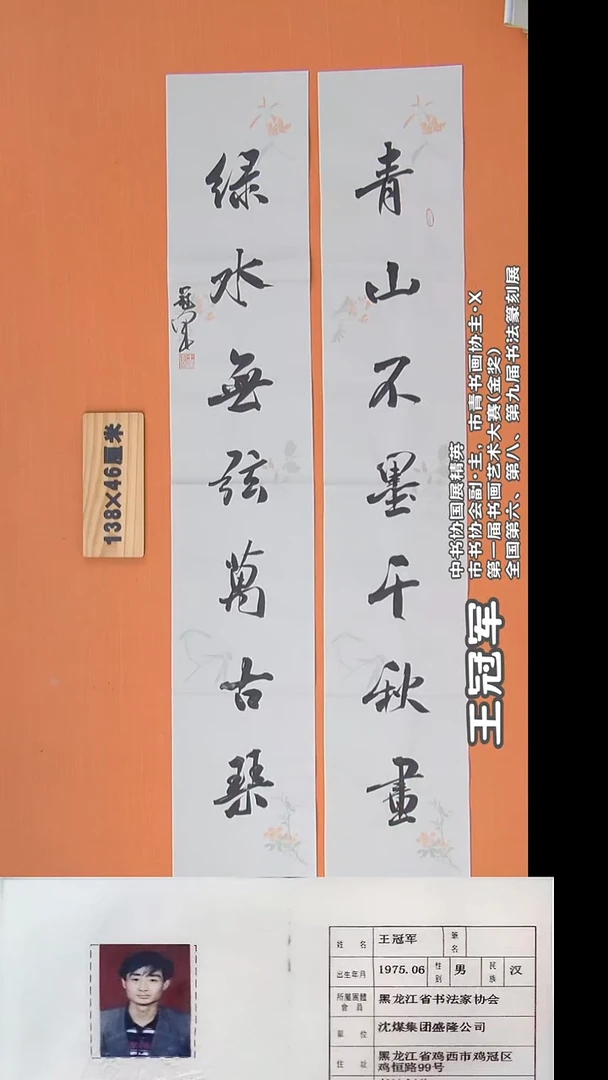 青山不墨千秋畫
綠水無弦萬古琴
冠軍
138×46厘米
王冠军
中书协国展精英
市书协会副·主，市青书画协主·X
第一届书画艺术大赛(金奖)
全国第六、第八、第九届书法篆刻展
姓名 王冠军 筆名
出生年月 1975.06 性别 男 民族 汉
所屬團體會員 黑龙江省书法家协会
單位 沈煤集团盛隆公司
住址 黑龙江省鸡西市鸡冠区
鸡恒路99号